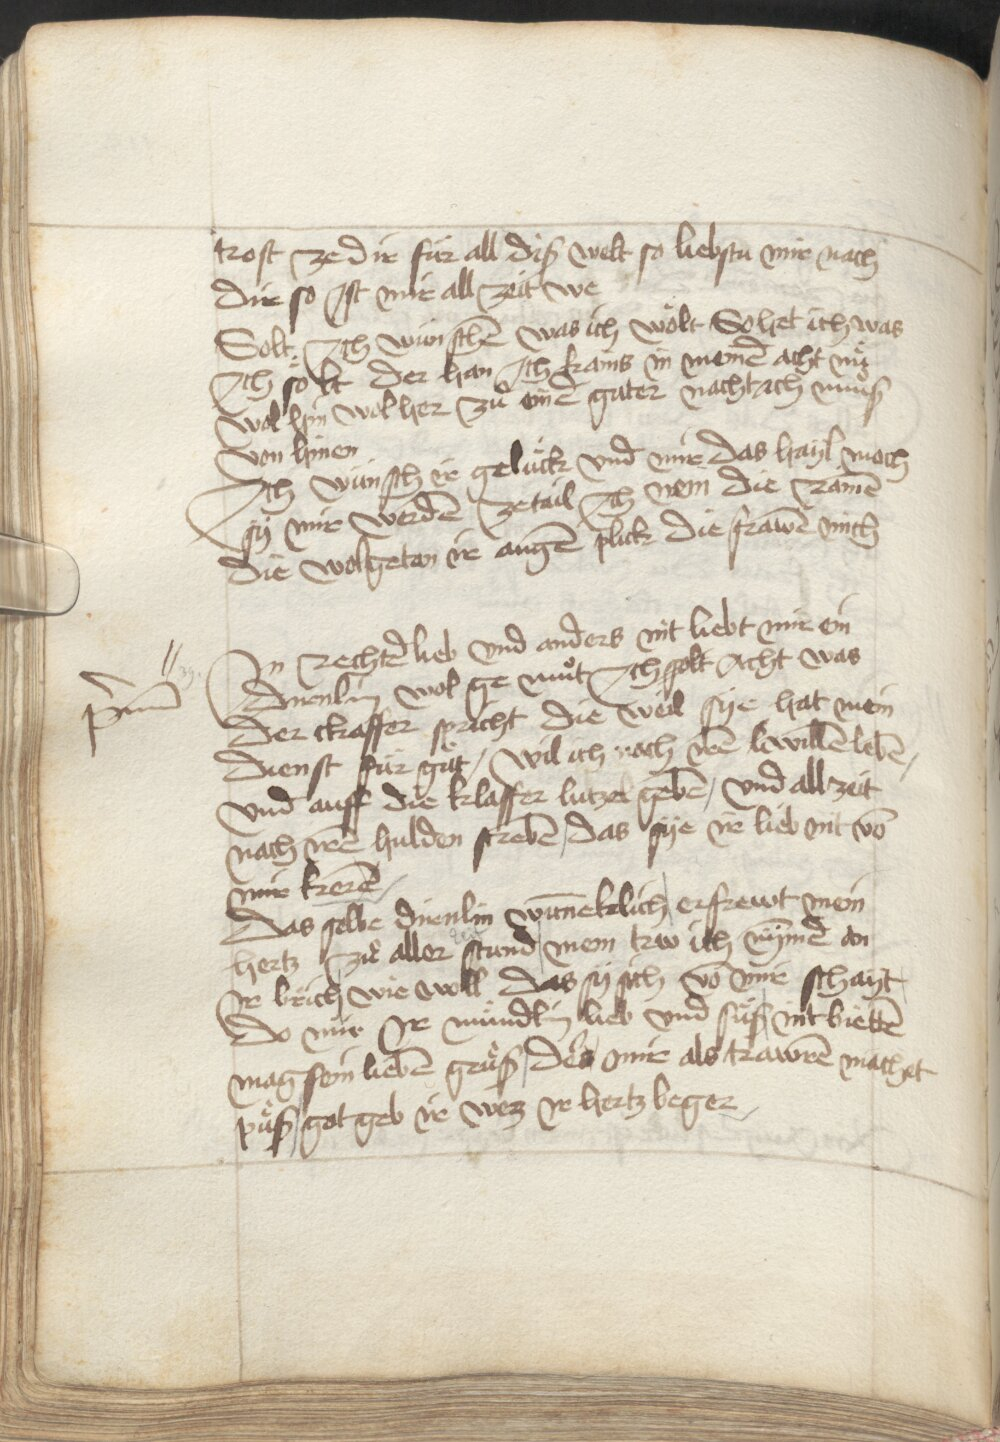 trost ze dir für all diß welt so liebstu mir nach
dir so Ist mir all zeit we
Solt Ich wünschē was ich wölt So het ich was
Ich sölt der han Ich kains in meinē acht nů
wol hin wol her zů einē guter nacht ich můß
von hinen
Ich wünsch ir gelück vnd mir das hayl moch
sy mir werdē ze tail Ich nem die rainē
die wolgetan ir augē plick die frawē mich
In rechtē lieb vnd anders nit liebt mir ein
direnlin wol ge můt Ich solt Acht was
der klaffer spricht die weil sye hat mein
dienst für gůt / wil ich noch irē willē lebē /
vnd auff die klaffer lutzel gebē / vnd all zeit
nach irē hulden strebē / das sye ir lieb nit vō
mir kerē /
Das selbe direnlin wūneklich erfrewt mein
hertz zů aller stund mein trw ich nȳmē an
ir brich wie woll das sy sich vō mir schayt
do mir Ir mündlin lieb vnd sůß nit bietē
mag sein liebē grůß / der mir als trawrē machet
půß / got geb ir wez ir hertz beger /